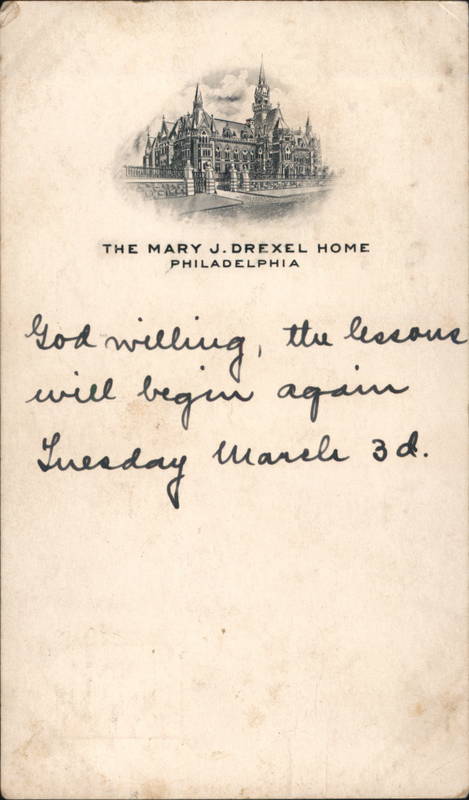 THE MARY J. DREXEL HOME
PHILADELPHIA
God willing, the lessons
will begin again
Tuesday March 3d.